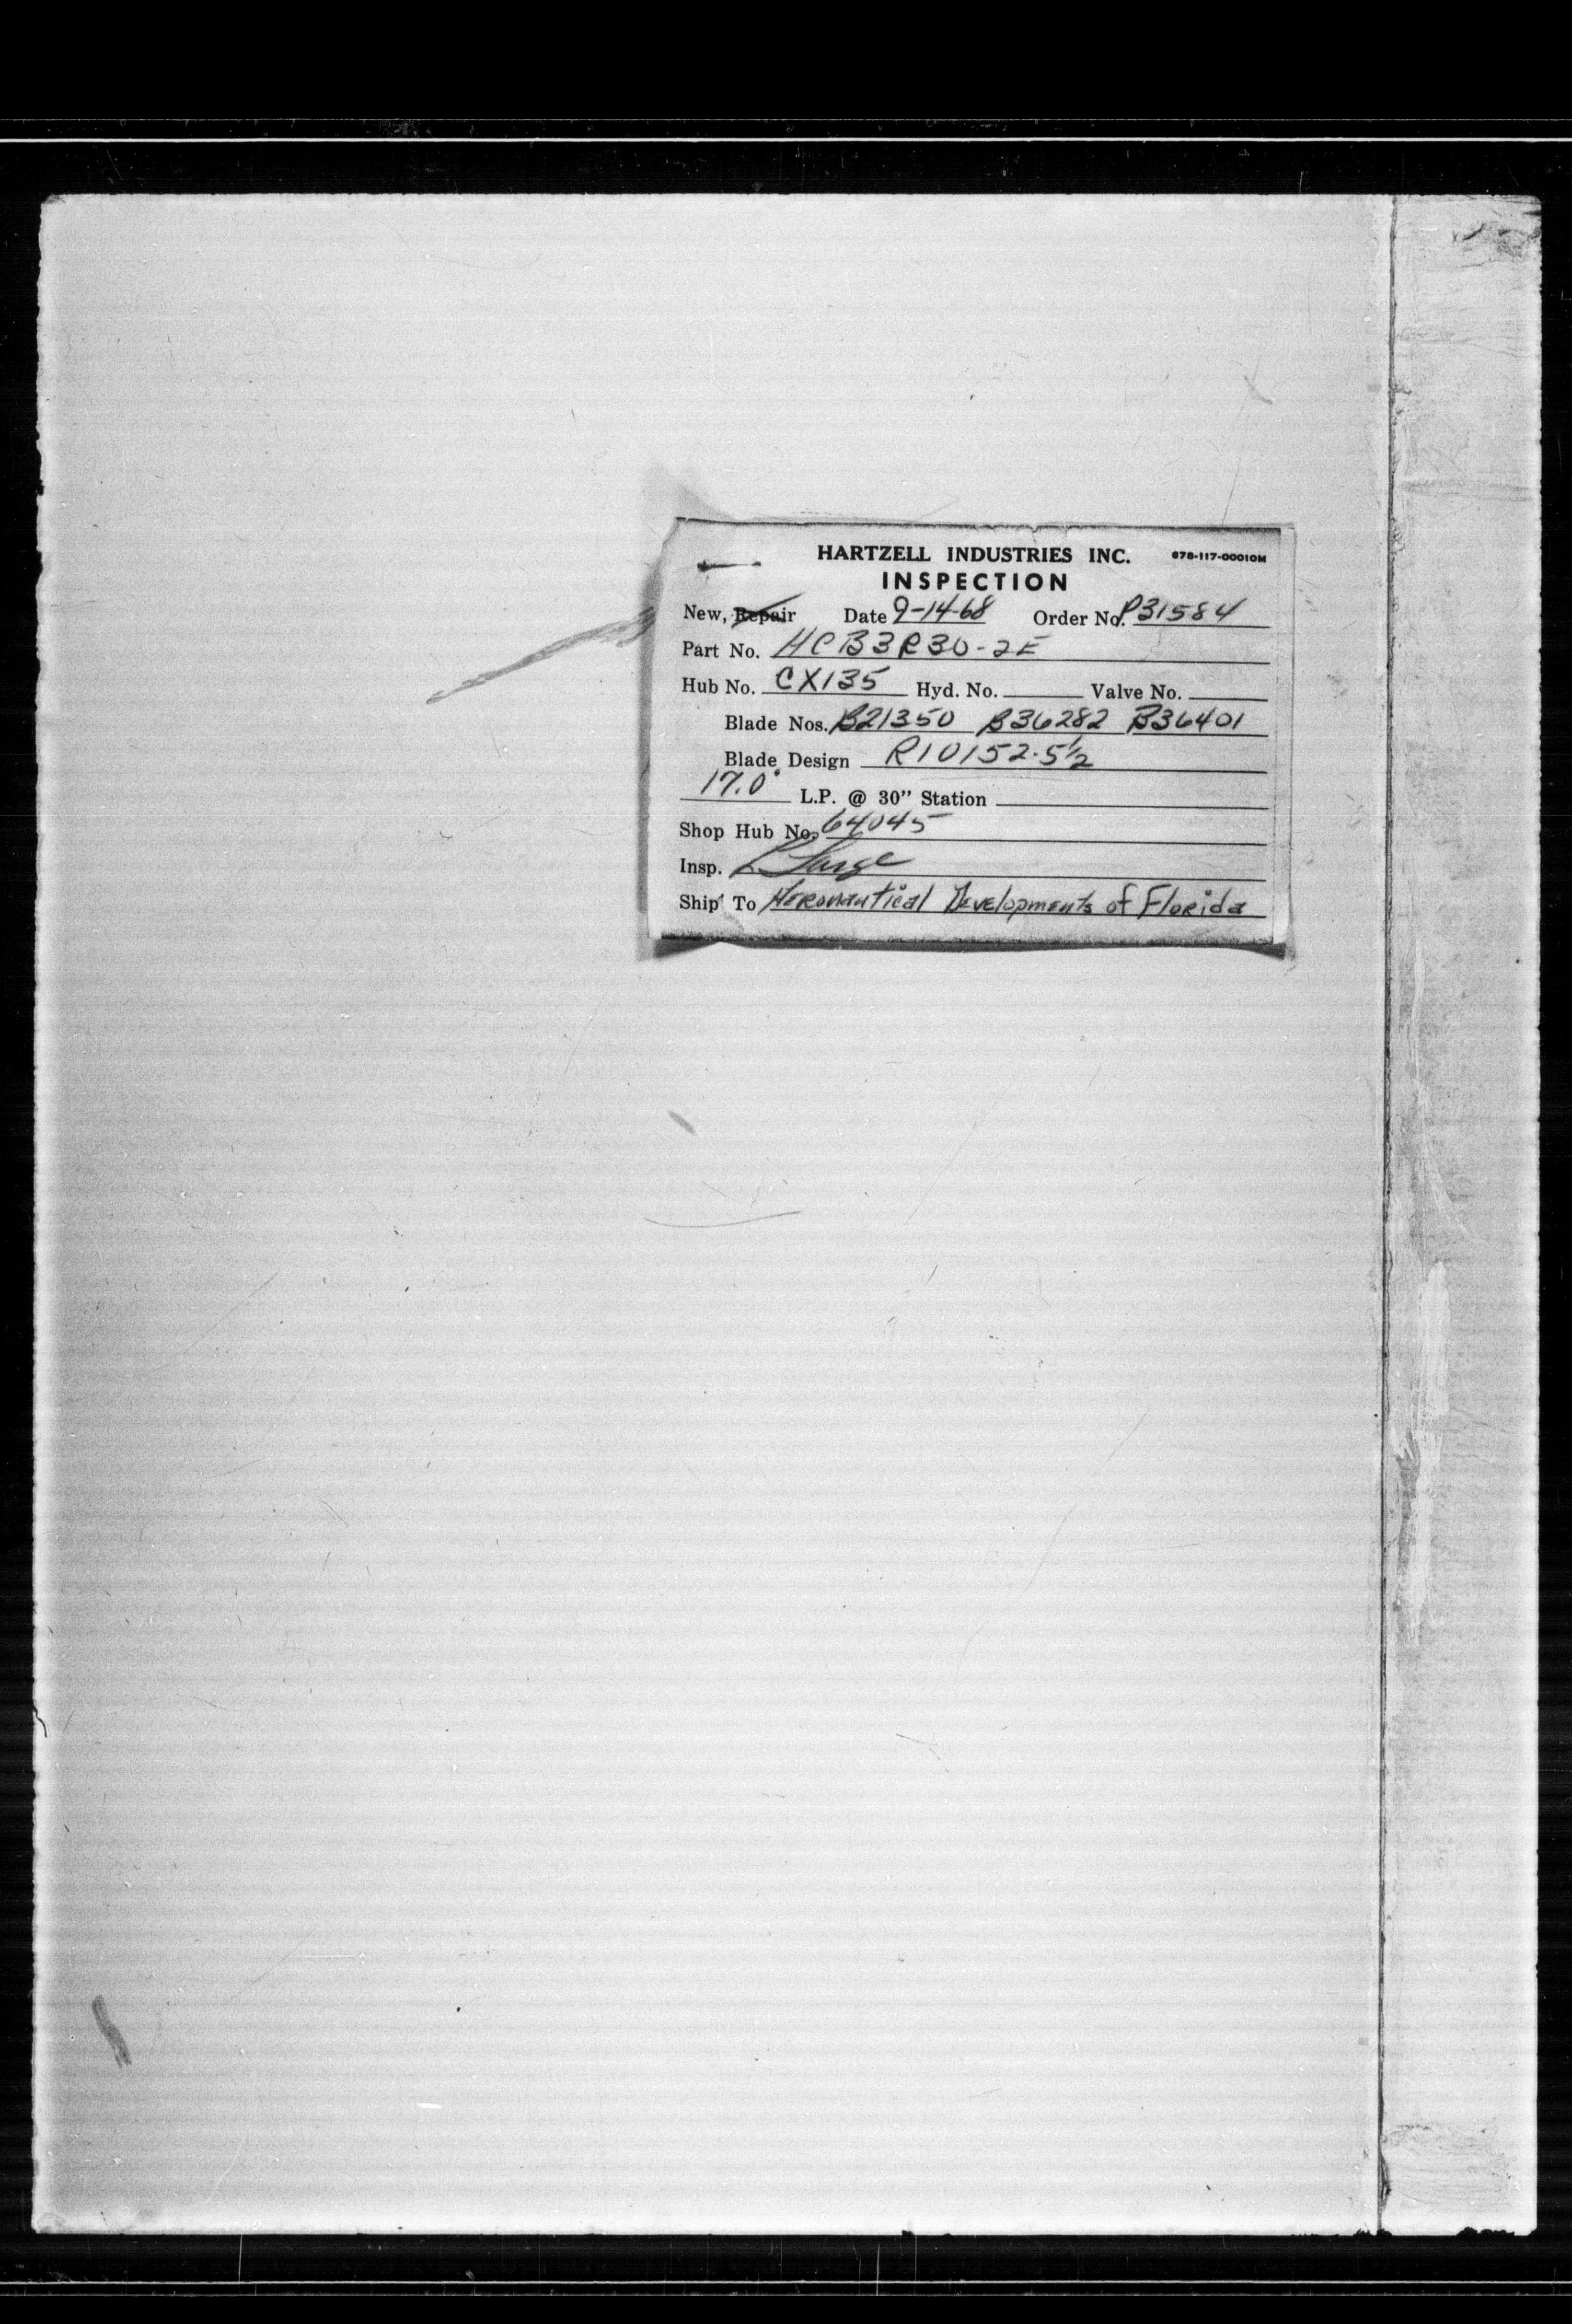 HARTZELL INDUSTRIES INC. 678-117-00010M
INSPECTION
New, Repair Date 9-14-68 Order No. P31584
Part No. HCB3R30-2E
Hub No. CX135 Hyd. No. Valve No.
Blade Nos. B21350 B36282 B36401
Blade Design R10152-5½
17.0° L.P. @ 30" Station
Shop Hub No. 64045
Insp.
Ship To Aeronautical Developments of Florida